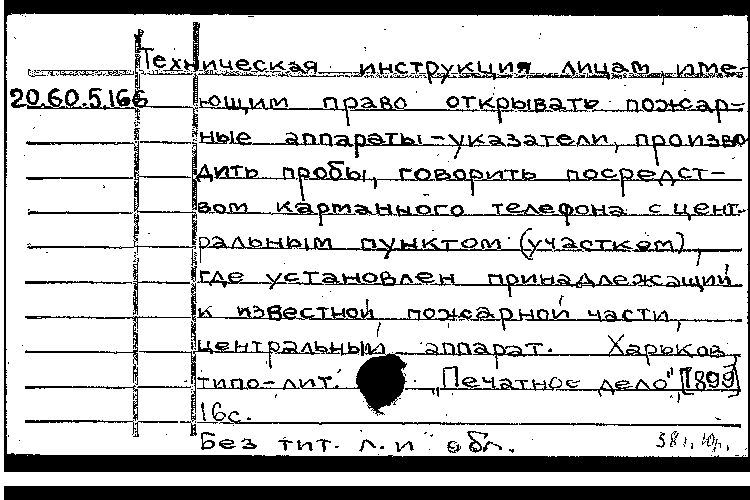 Техническая инструкция лицам, име-
20.60.5.166 ющим право открывать пожар-
ные аппараты-указатели, произво
дить пробы, говорить посредст-
вом карманного телефона с цент-
ральным пунктом (участком),
где установлен принадлежащий
к известной пожарной части,
центральный аппарат. Харьков,
типо-лит. "Печатное дело", [1899]
16с.
Без тит. л. и обл.